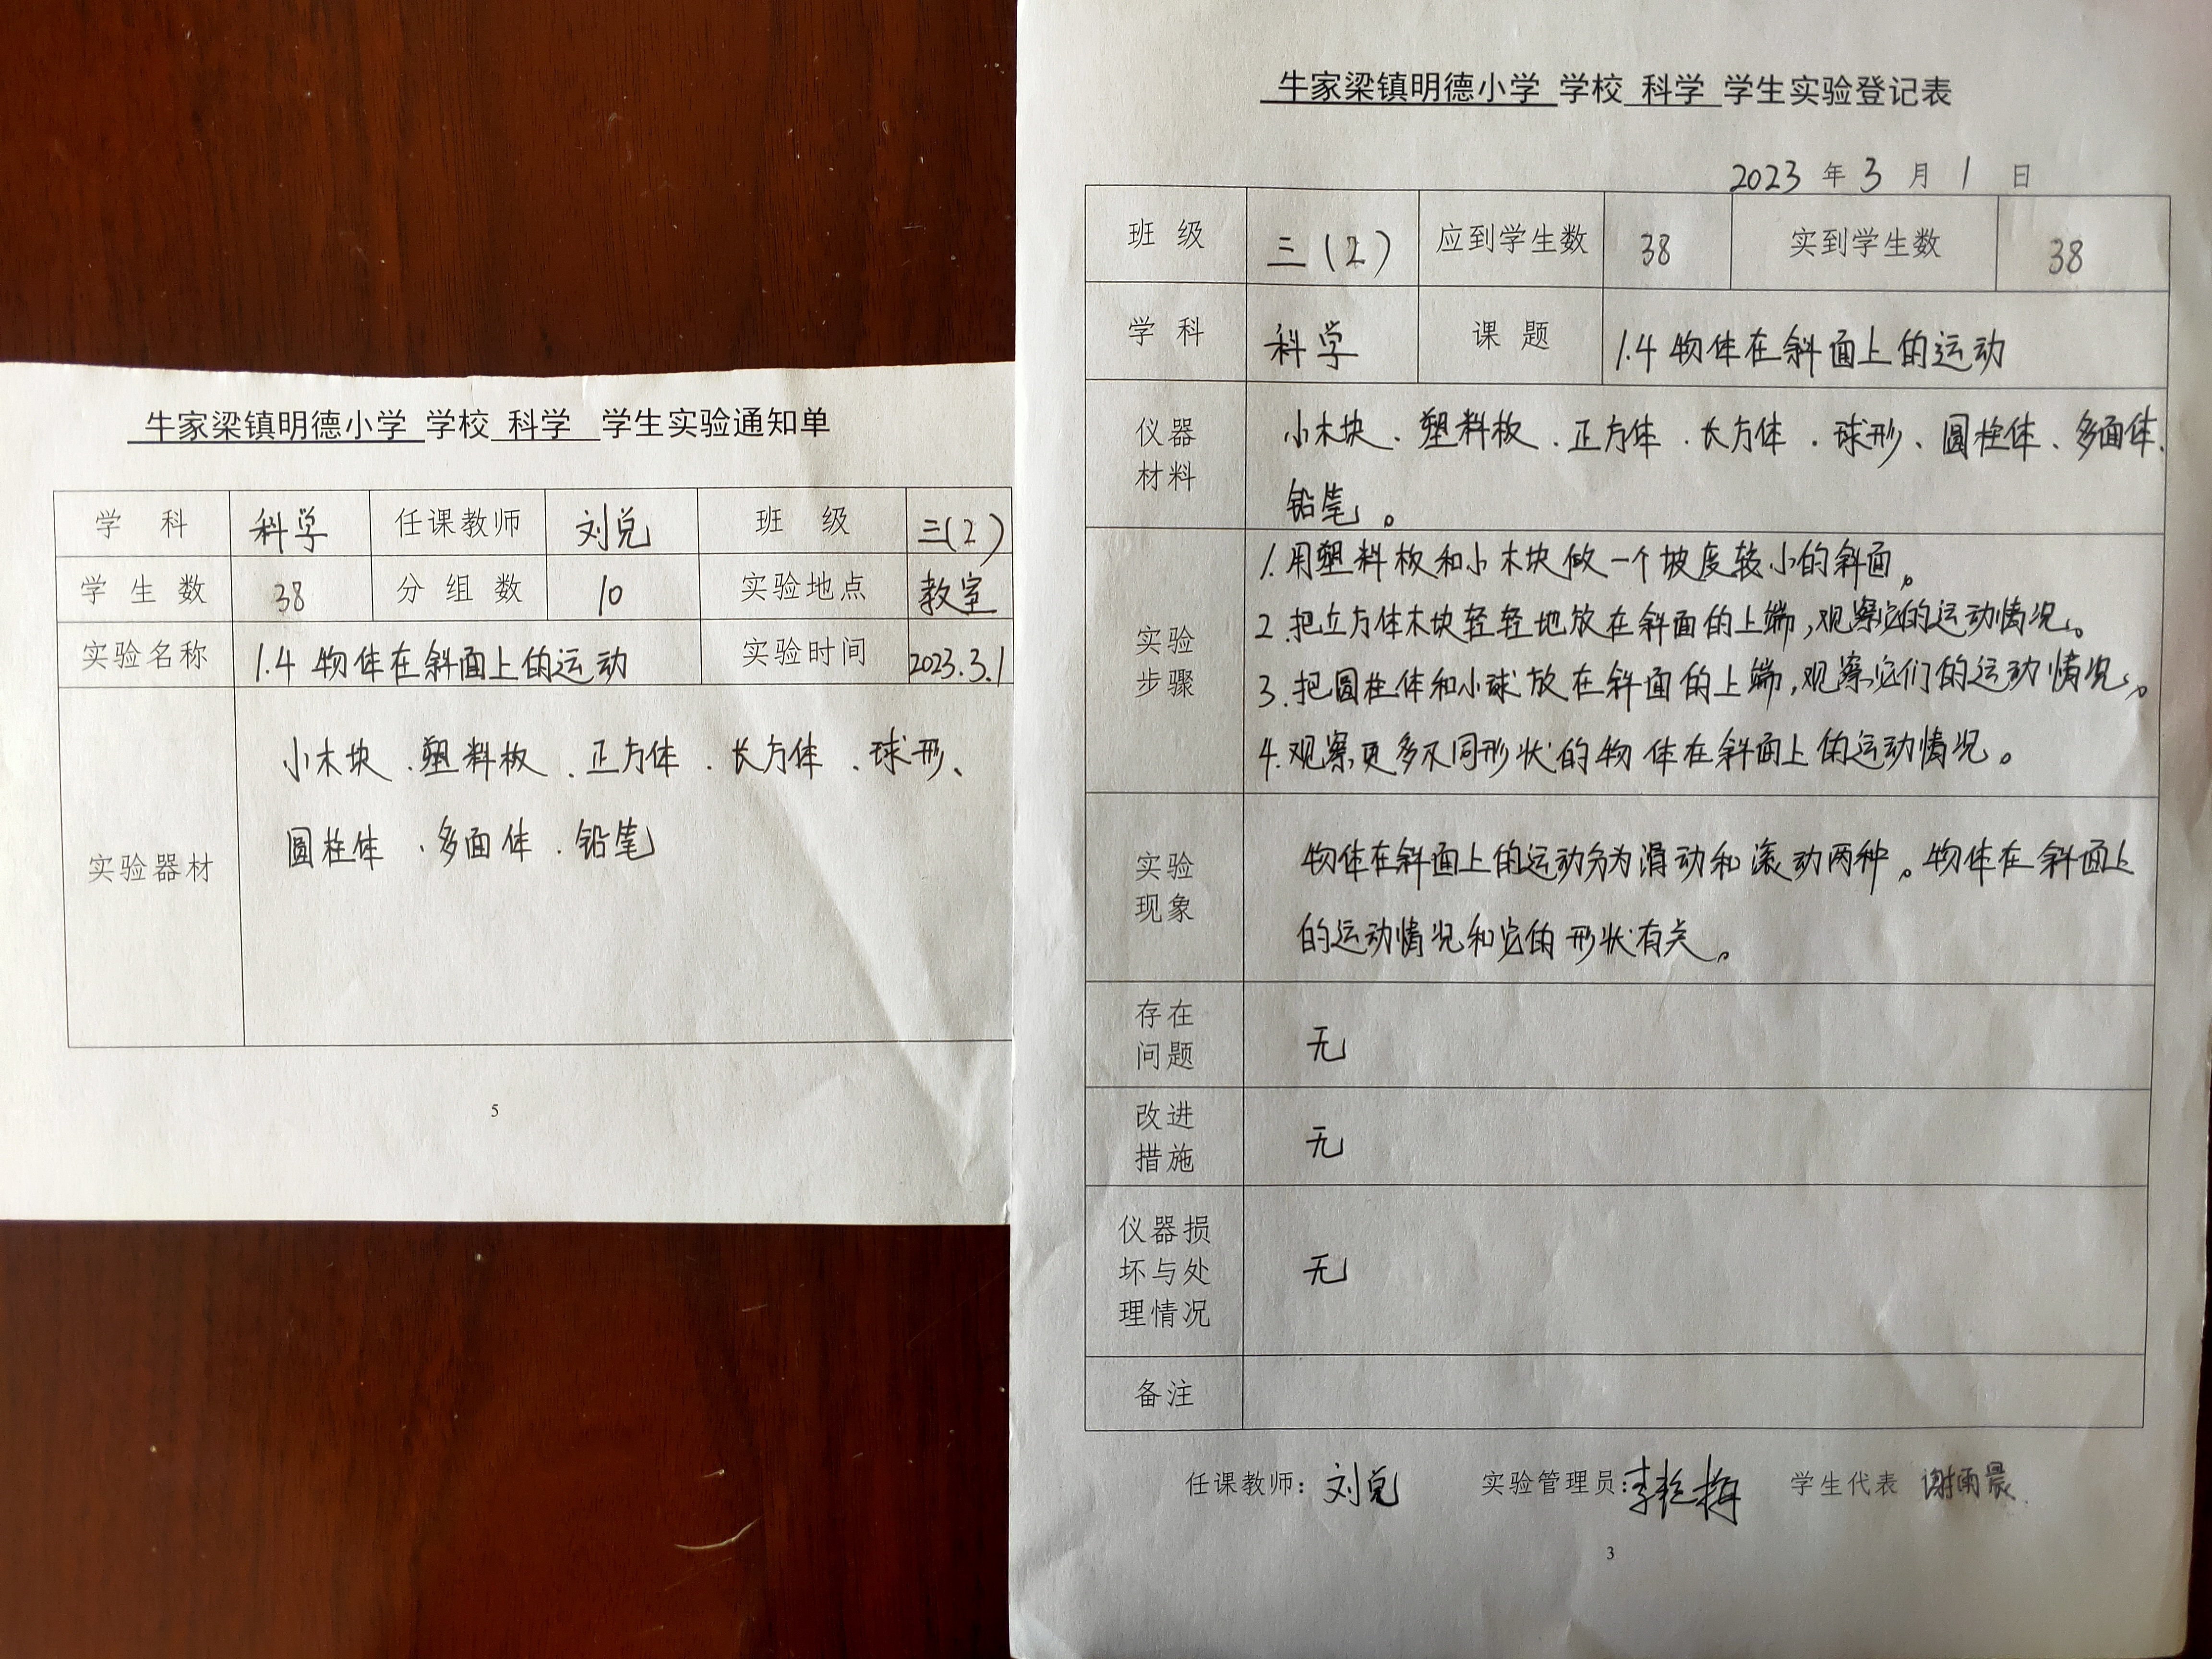 牛家梁镇明德小学 学校 科学 学生实验通知单
学 科 科学 任课教师 刘兑 班 级 三(2)
学 生 数 38 分 组 数 10 实验地点 教室
实验名称 1.4 物体在斜面上的运动 实验时间 2023.3.1
实验器材
小木块、塑料板、正方体、长方体、球形、
圆柱体、多面体、铅笔
5
牛家梁镇明德小学 学校 科学 学生实验登记表
2023 年 3 月 1 日
班 级 三(2) 应到学生数 38 实到学生数 38
学 科 科学 课 题 1.4 物体在斜面上的运动
仪器
材料
小木块、塑料板、正方体、长方体、球形、圆柱体、多面体、
铅笔。
实验
步骤
1.用塑料板和小木块做一个坡度较小的斜面。
2.把立方体木块轻轻地放在斜面的上端,观察它的运动情况。
3.把圆柱体和小球放在斜面的上端,观察它们的运动情况。
4.观察更多不同形状的物体在斜面上的运动情况。
实验
现象
物体在斜面上的运动分为滑动和滚动两种。物体在斜面上
的运动情况和它的形状有关。
存在
问题
无
改进
措施
无
仪器损
坏与处
理情况
无
备注
任课教师: 刘兑 实验管理员: 李艳梅 学生代表 谢雨晨
3